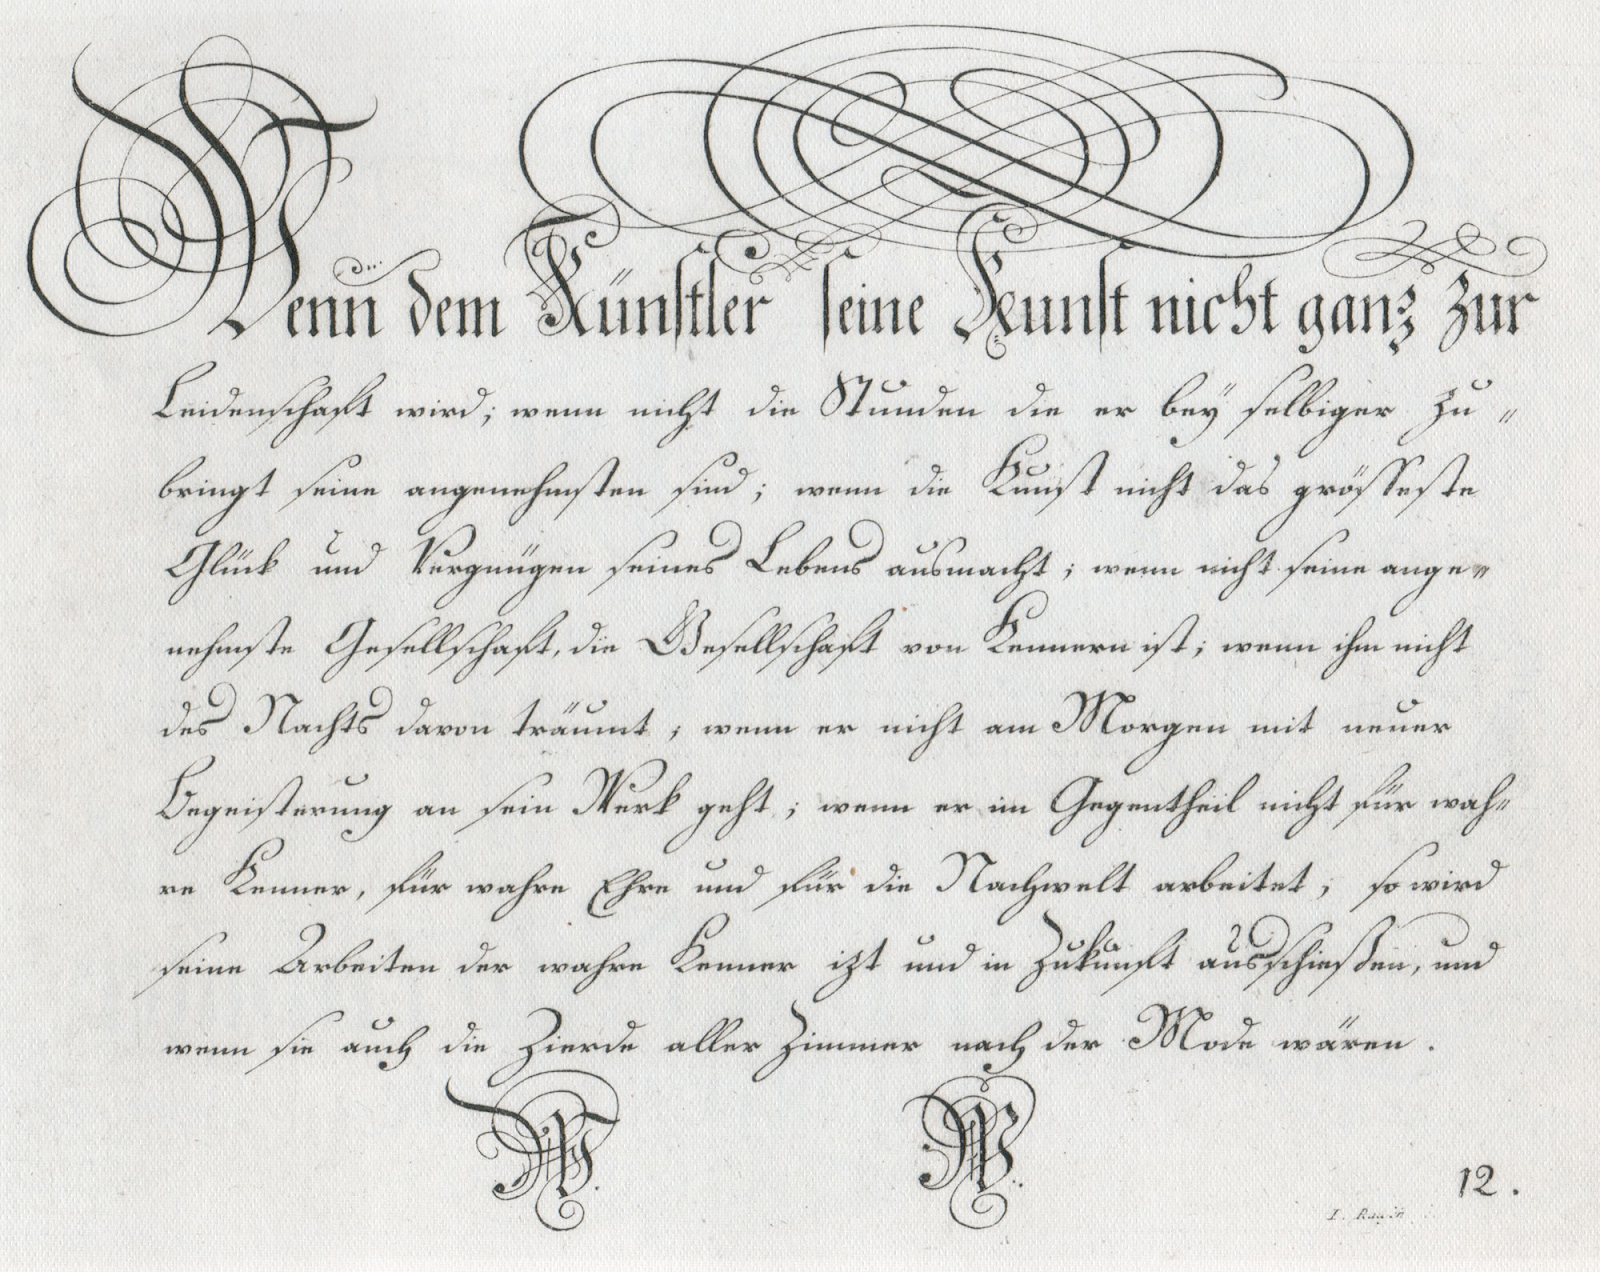 Wenn dem Künstler seine Kunst nicht ganz zur
Leidenschaft wird; wenn nicht die Stunden die er bey selbiger zu⸗
bringt seine angenehmsten sind; wenn die Kunst nicht das grösseste
Glück und Vergnügen seines Lebens ausmacht; wenn nicht seine ange⸗
nehmste Gesellschaft, die Gesellschaft von Kennern ist; wenn ihm nicht
des Nachts davon träumt; wenn er nicht am Morgen mit neuer
Begeisterung an sein Werk geht; wenn er im Gegentheil nicht für wah⸗
re Kenner, für wahre Ehre und für die Nachwelt arbeitet; so wird
seine Arbeiten der wahre Kenner izt und in Zukunft ausschießen, und
wenn sie auch die Zierde aller Zimmer nach der Mode wären.
12.